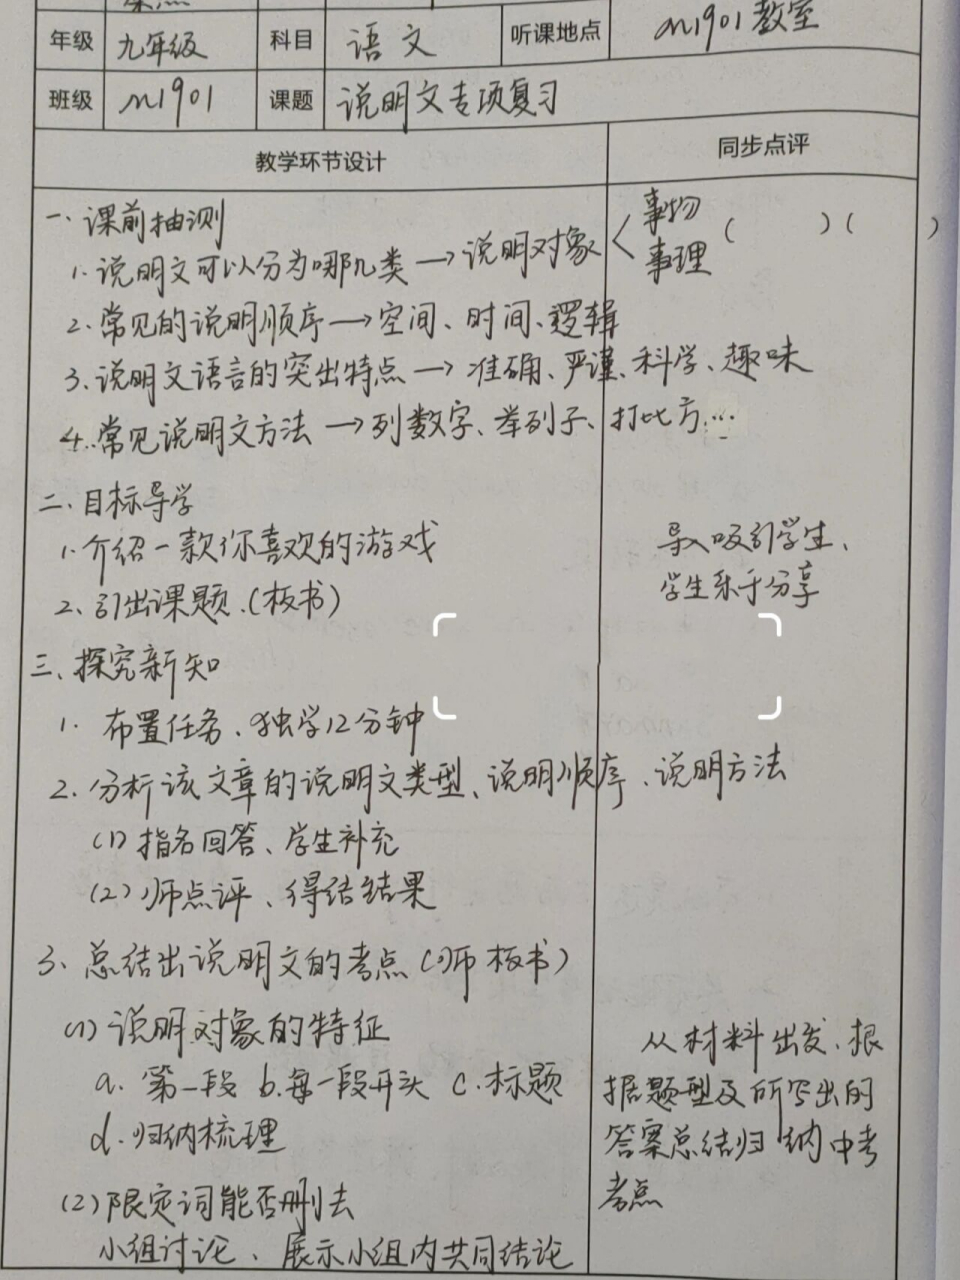 年级 九年级 科目 语文 听课地点 m1901教室
班级 m1901 课题 说明文专项复习
教学环节设计 同步点评
一、课前抽测
1.说明文可以分为哪几类→说明对象<事物 事理 ( )( )
2.常见的说明顺序→空间、时间、逻辑
3.说明文语言的突出特点→准确、严谨、科学、趣味
4.常见说明文方法→列数字、举列子、打比方…
二、目标导学
1.介绍一款你喜欢的游戏
2.引出课题.(板书)
导入吸引学生、
学生乐于分享
三、探究新知
1.布置任务、独学12分钟
2.分析该文章的说明文类型、说明顺序、说明方法
(1)指名回答、学生补充
(2)师点评、得结结果
3、总结出说明文的考点(师板书)
(1)说明对象的特征
a.第一段 b.每一段开头 c.标题
d.归纳梳理
(2)限定词能否删去
小组讨论、展示小组内共同结论
从材料出发、根
据题型及所写出的
答案总结归纳中考
考点